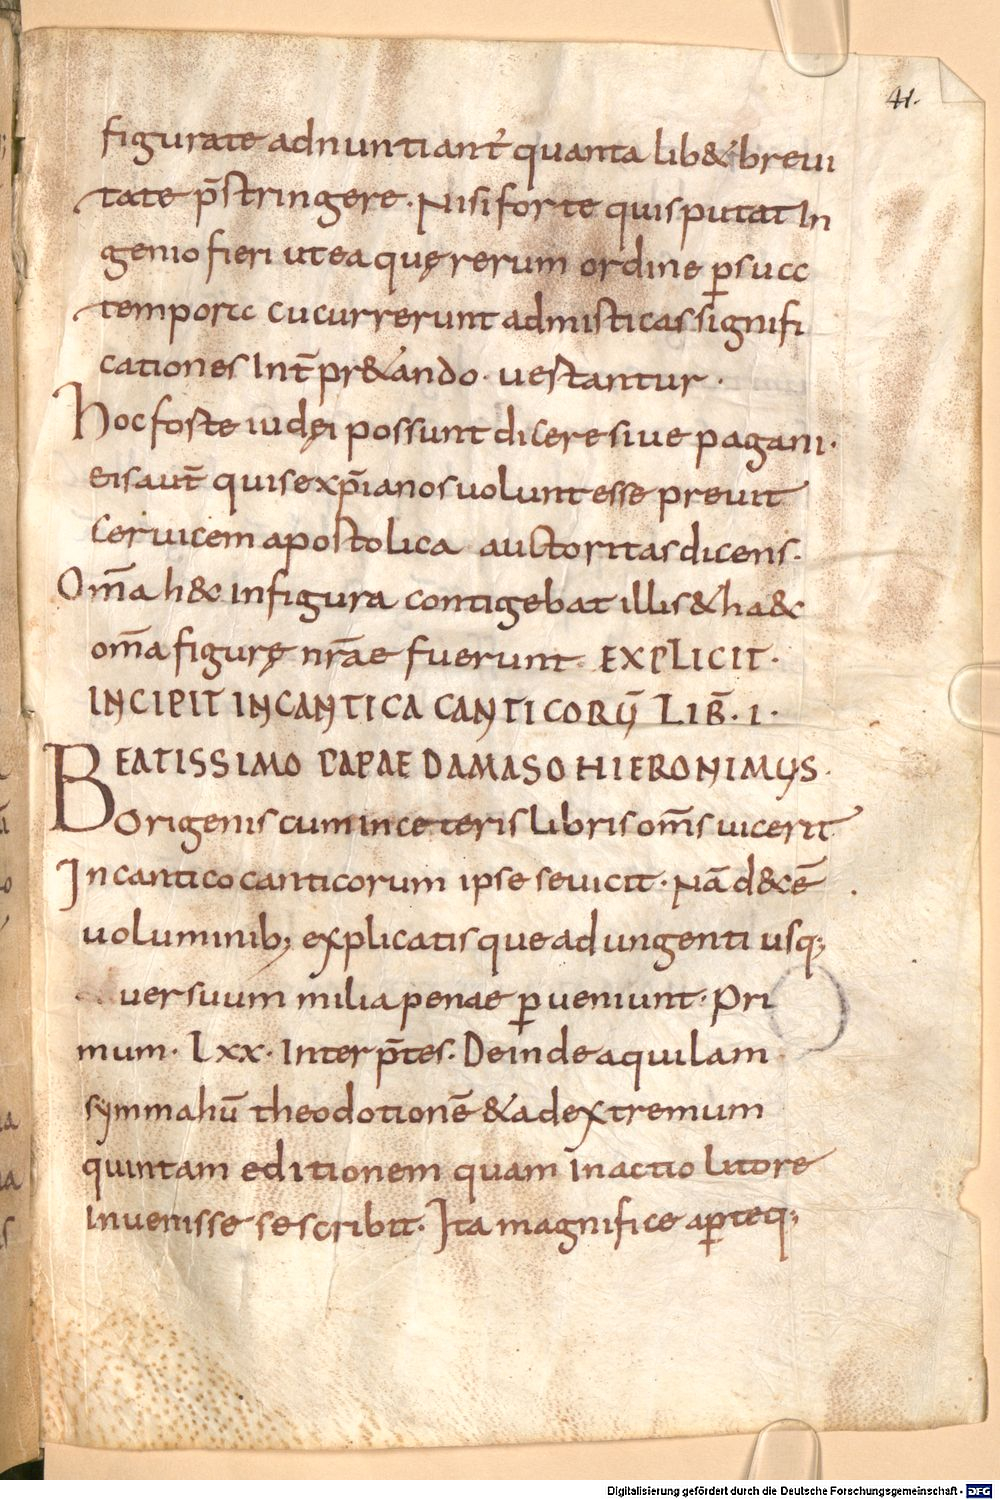 41.
figurate adnuntiant' quanta lib& breui
tate p̄stringere. Nisi forte quis putat In
genio fieri ut ea quę rerum ordine p̱ succ
temporcc cucurrerunt ad misticas signifi
cationes Int̄pr&ando. uestantur.
hoc foste iudęi possunt dicere siue pagani.
eis aut̄ qui se xp̄ianos uolunt esse premit
ceruicem apostolica auctoritas dicens.
Om̄a h&c In figura contigebat illis & ha&c
om̄a figurę nr̄ae fuerunt. EXPLICIT.
INCIPIT IN CANTICA CANTICORŪ LIB̄. I.
BEATISSIMO PAPAE DAMASO HIERONIMUS.
Origenis cum in ceteris libris om̄s uicerit
In cantico canticorum ipse se uicit. Nā d&cē
uoluminib; explicatis que ad uigenti usq;
uersuum milia penae p̱ueniunt. Pri
mum. Lxx. Interp̄tes. Deinde aquilam
symmahū theodotionē & ad extremum
quintam editionem quam in actio litore
Inuenisse se scribit. Ita magnifice ap̱teq;
Digitalisierung gefördert durch die Deutsche Forschungsgemeinschaft - DFG